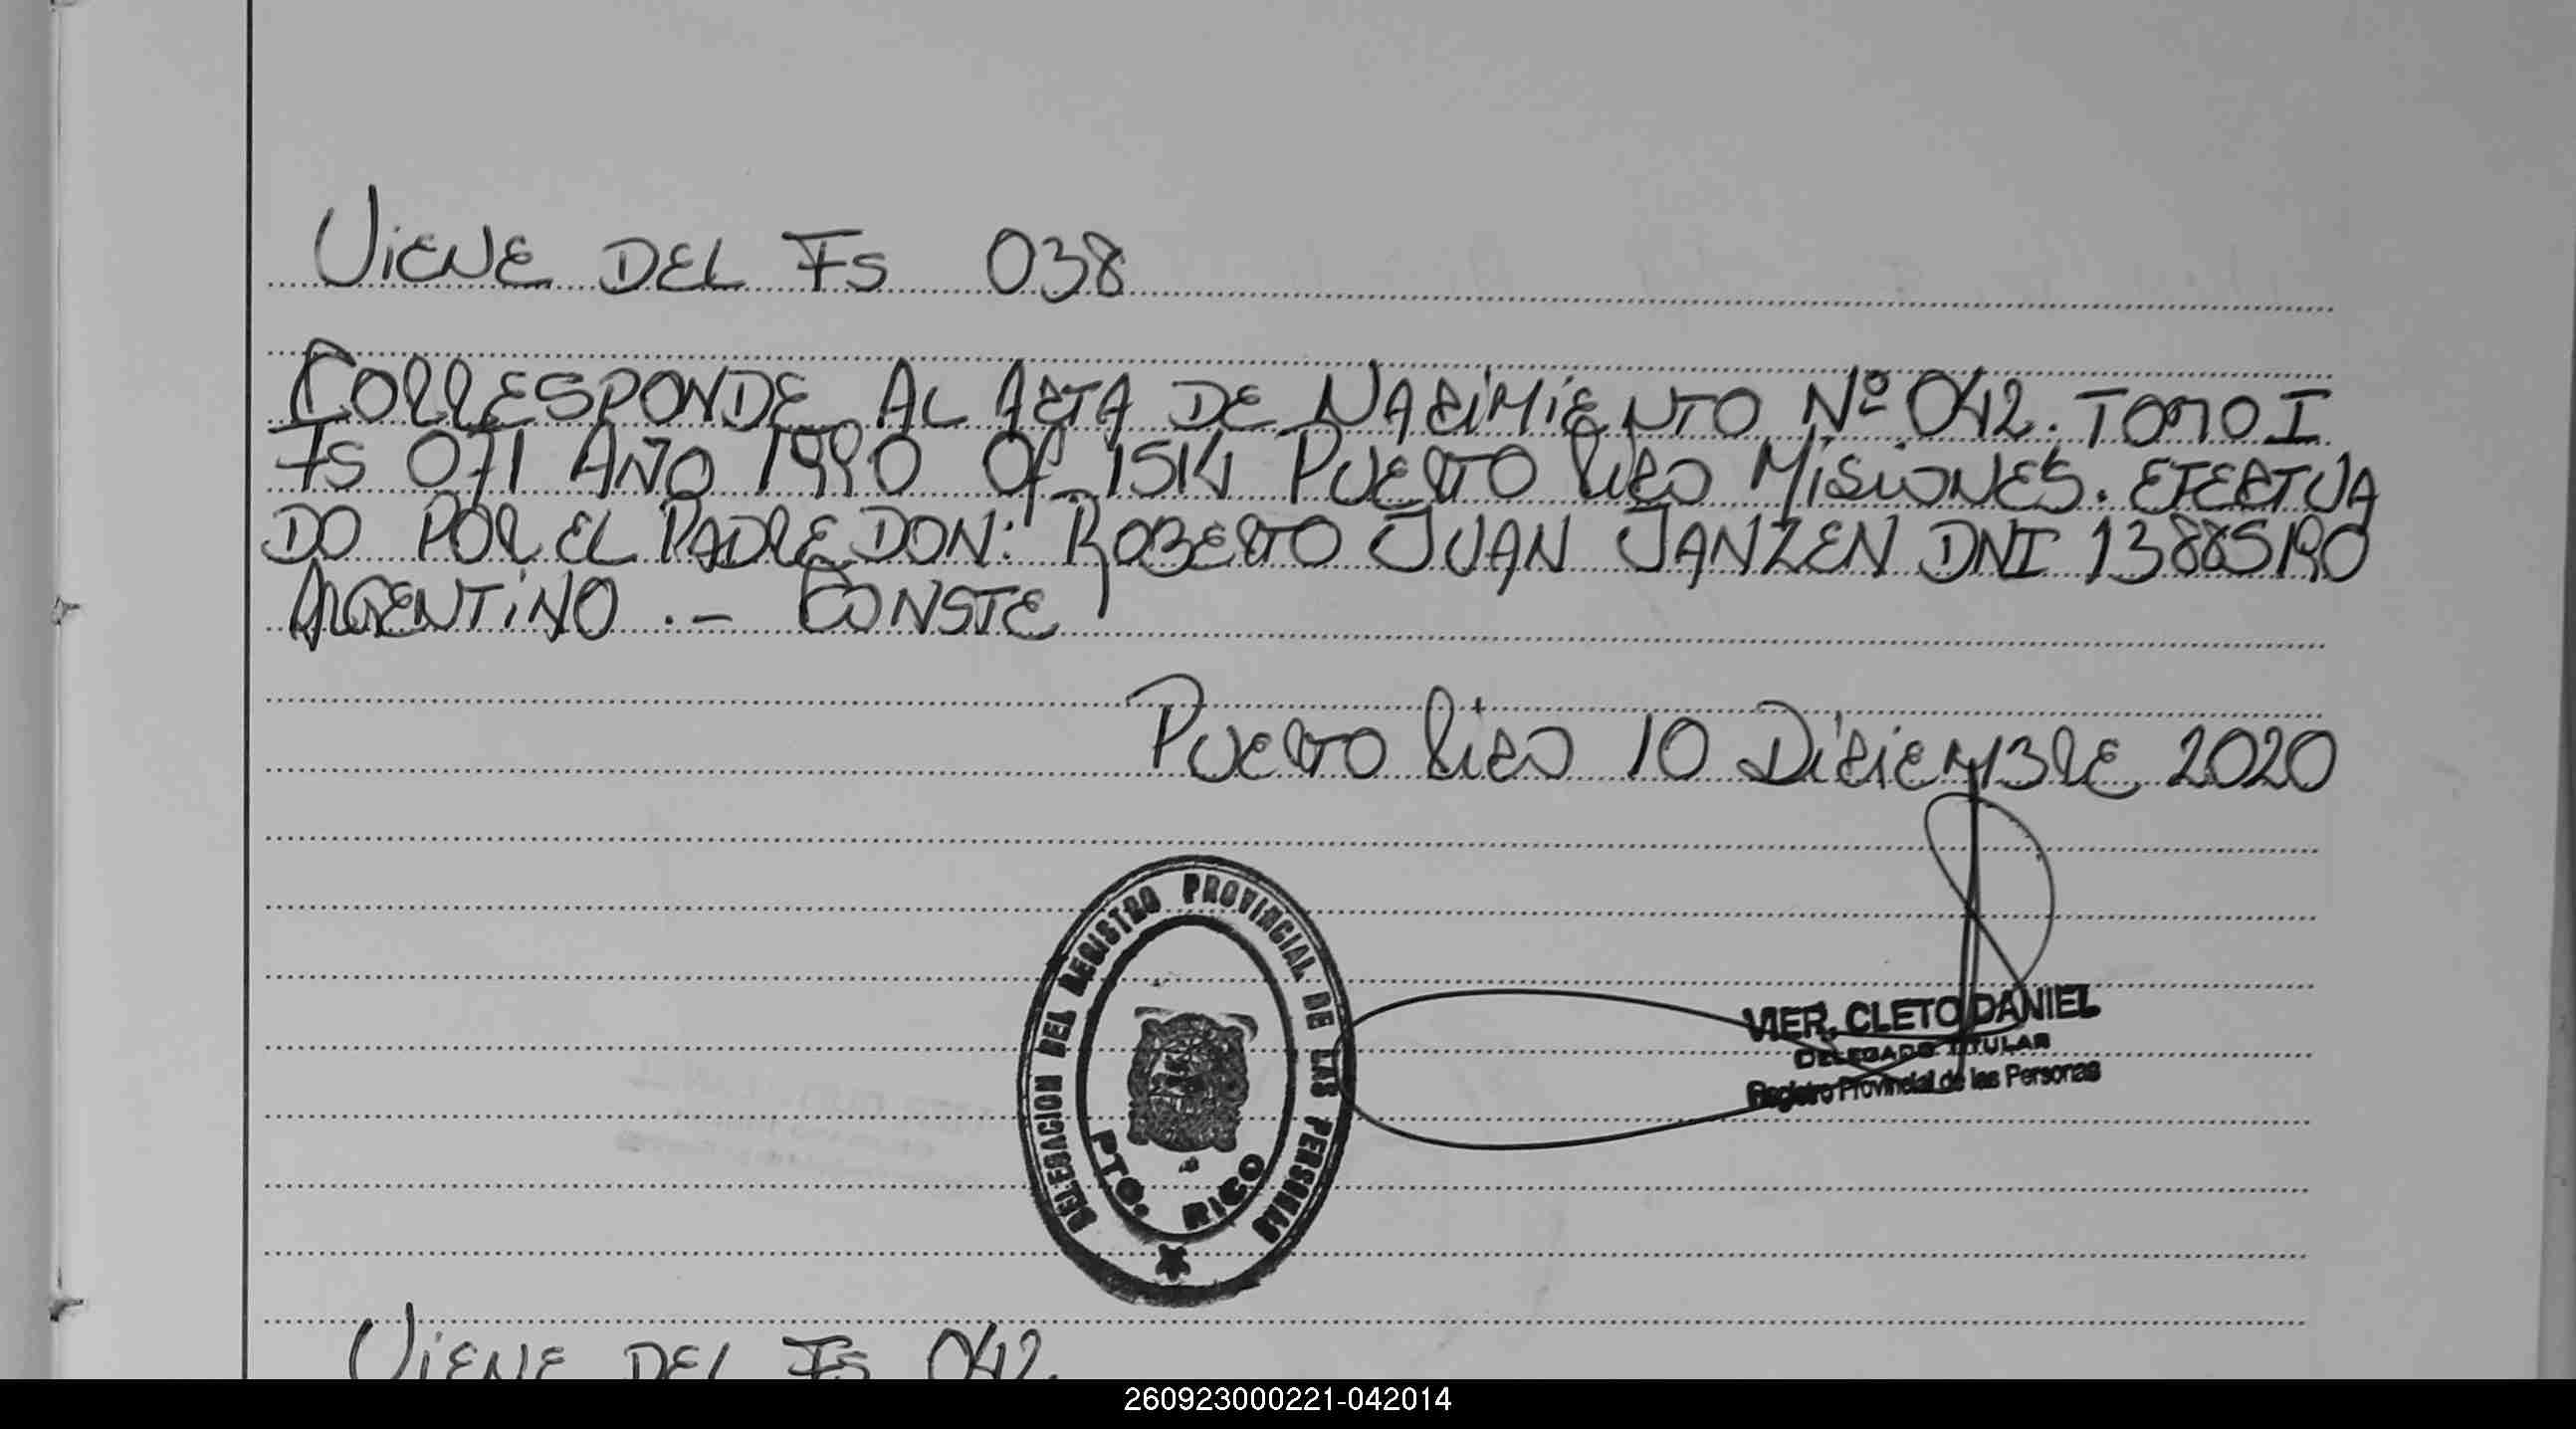 VIENE DEL FS 038
CORRESPONDE AL ACTA DE NACIMIENTO Nº 042. TOMO I
FS 071 AÑO 1990 Of. 1514 PUERTO RICO MISIONES. EFECTUA
DO POR EL PADRE DON: ROBERTO JUAN JANZEN DNI 13885190
ARGENTINO .- CONSTE
PUERTO RICO 10 DICIEMBRE 2020
DELEGACION DEL REGISTRO PROVINCIAL DE LAS PERSONAS
PTO. RICO
VIER, CLETO DANIEL
DELEGADO TITULAR
Registro Provincial de las Personas
VIENE DEL FS 042.
260923000221-042014